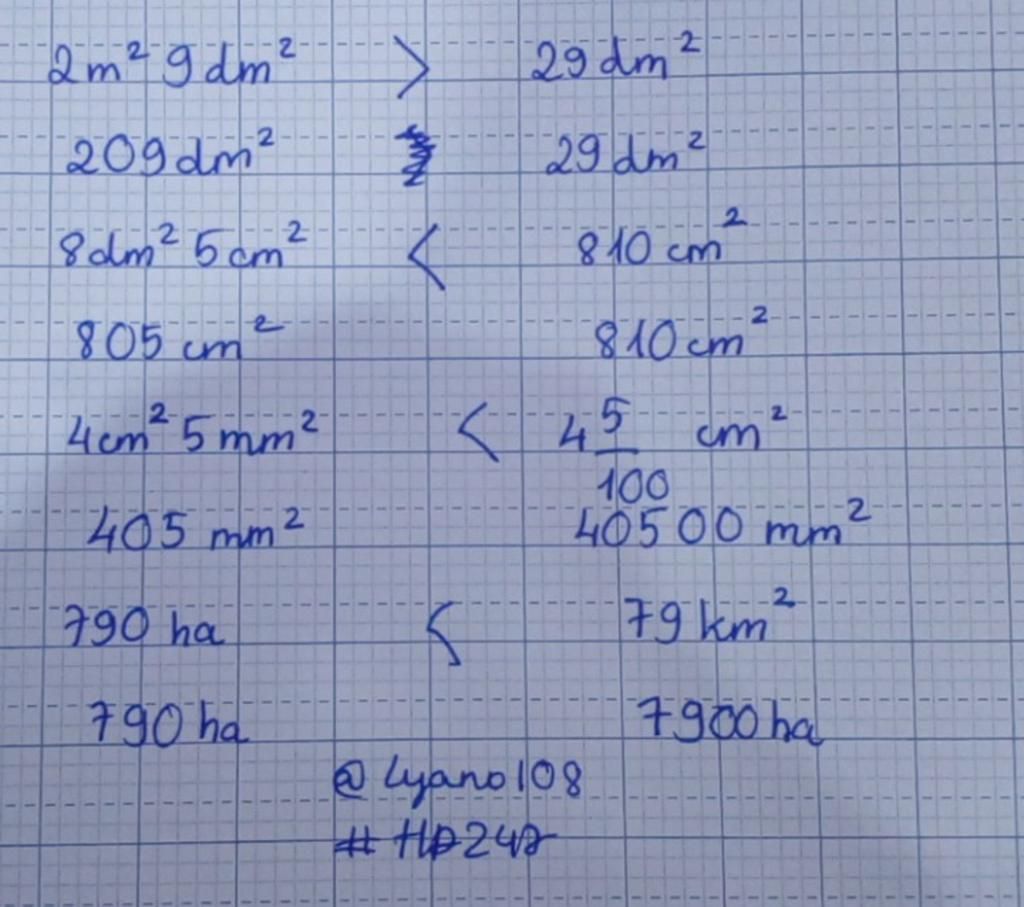 2m² 9dm² > 29dm²
209dm² 29dm²
8dm² 5cm² < 810cm²
805cm² 810cm²
4cm² 5mm² < 4 5/100 cm²
405mm² 40500mm²
790 ha < 79km²
790ha 7900ha
@Lyano108
#HD247